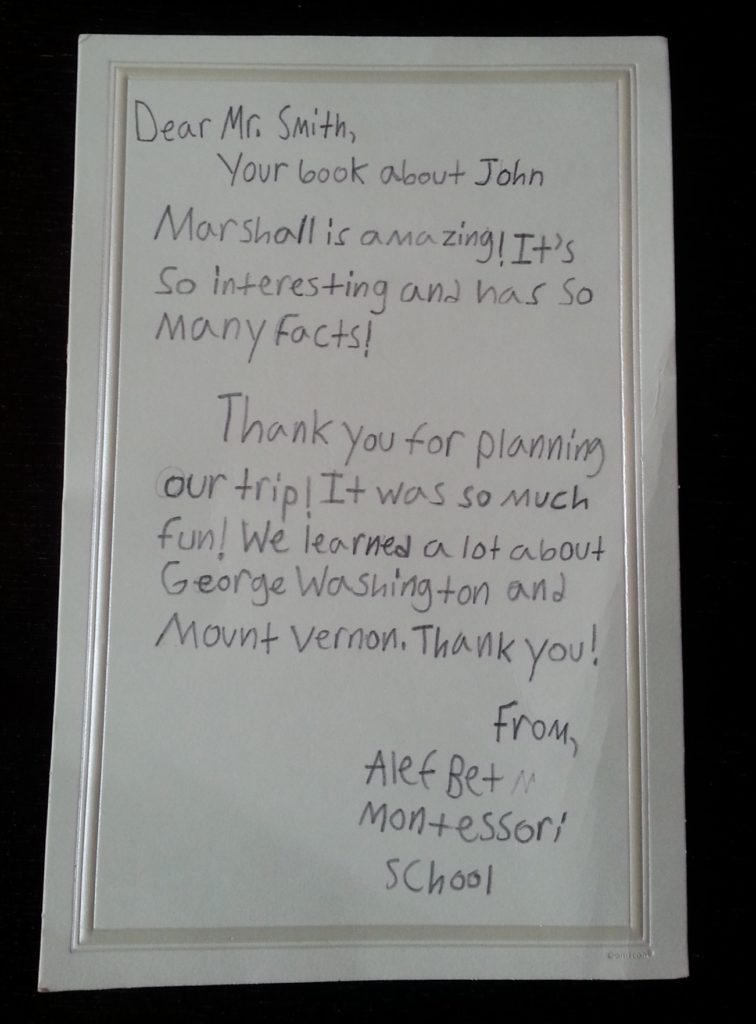 Dear Mr. Smith,
Your book about John
Marshall is amazing! It's
So interesting and has so
many facts!
Thank you for planning
our trip! It was so much
fun! We learned a lot about
George Washington and
Mount Vernon. Thank you!
From,
Alef Bet M
Montessori
School